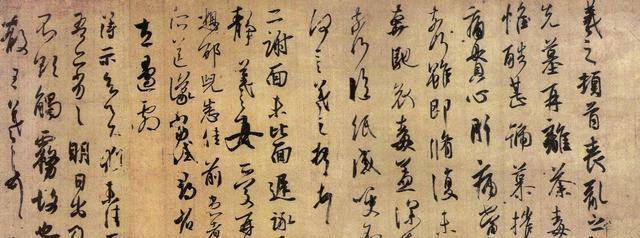 羲之頓首喪亂之
先墓再離荼毒
惟酷甚號慕摧
痛貫心肝痛當
奈何雖即脩復未
奔馳哀毒益深
奈何臨紙感哽不
何言羲之頓首
二謝面未比面遲詠
靜羲之女愛再
想邵兒悉佳前患者
所送議當試尋
左邊劇
得示知足下猶未佳
吾亦劣劣明日出乃
不欲觸霧故也
散王羲之頓